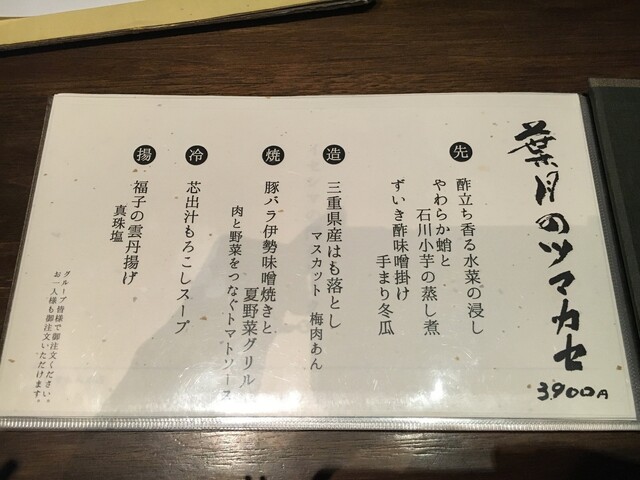 葉月のツマカセ
3,900円
先
酢立ち香る水菜の浸し
やわらか蛸と
石川小芋の蒸し煮
ずいき酢味噌掛け
手まり冬瓜
造
三重県産はも落とし
マスカット 梅肉あん
焼
豚バラ伊勢味噌焼きと
夏野菜グリル
肉と野菜をつなぐトマトソース
冷
芯出汁もろこしスープ
揚
福子の雲丹揚げ
真珠塩
グループ皆様で御注文ください。
お一人様も御注文いただけます。